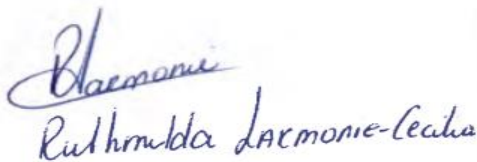 RLarmonie
Ruthmilda Larmonie-Cecilia